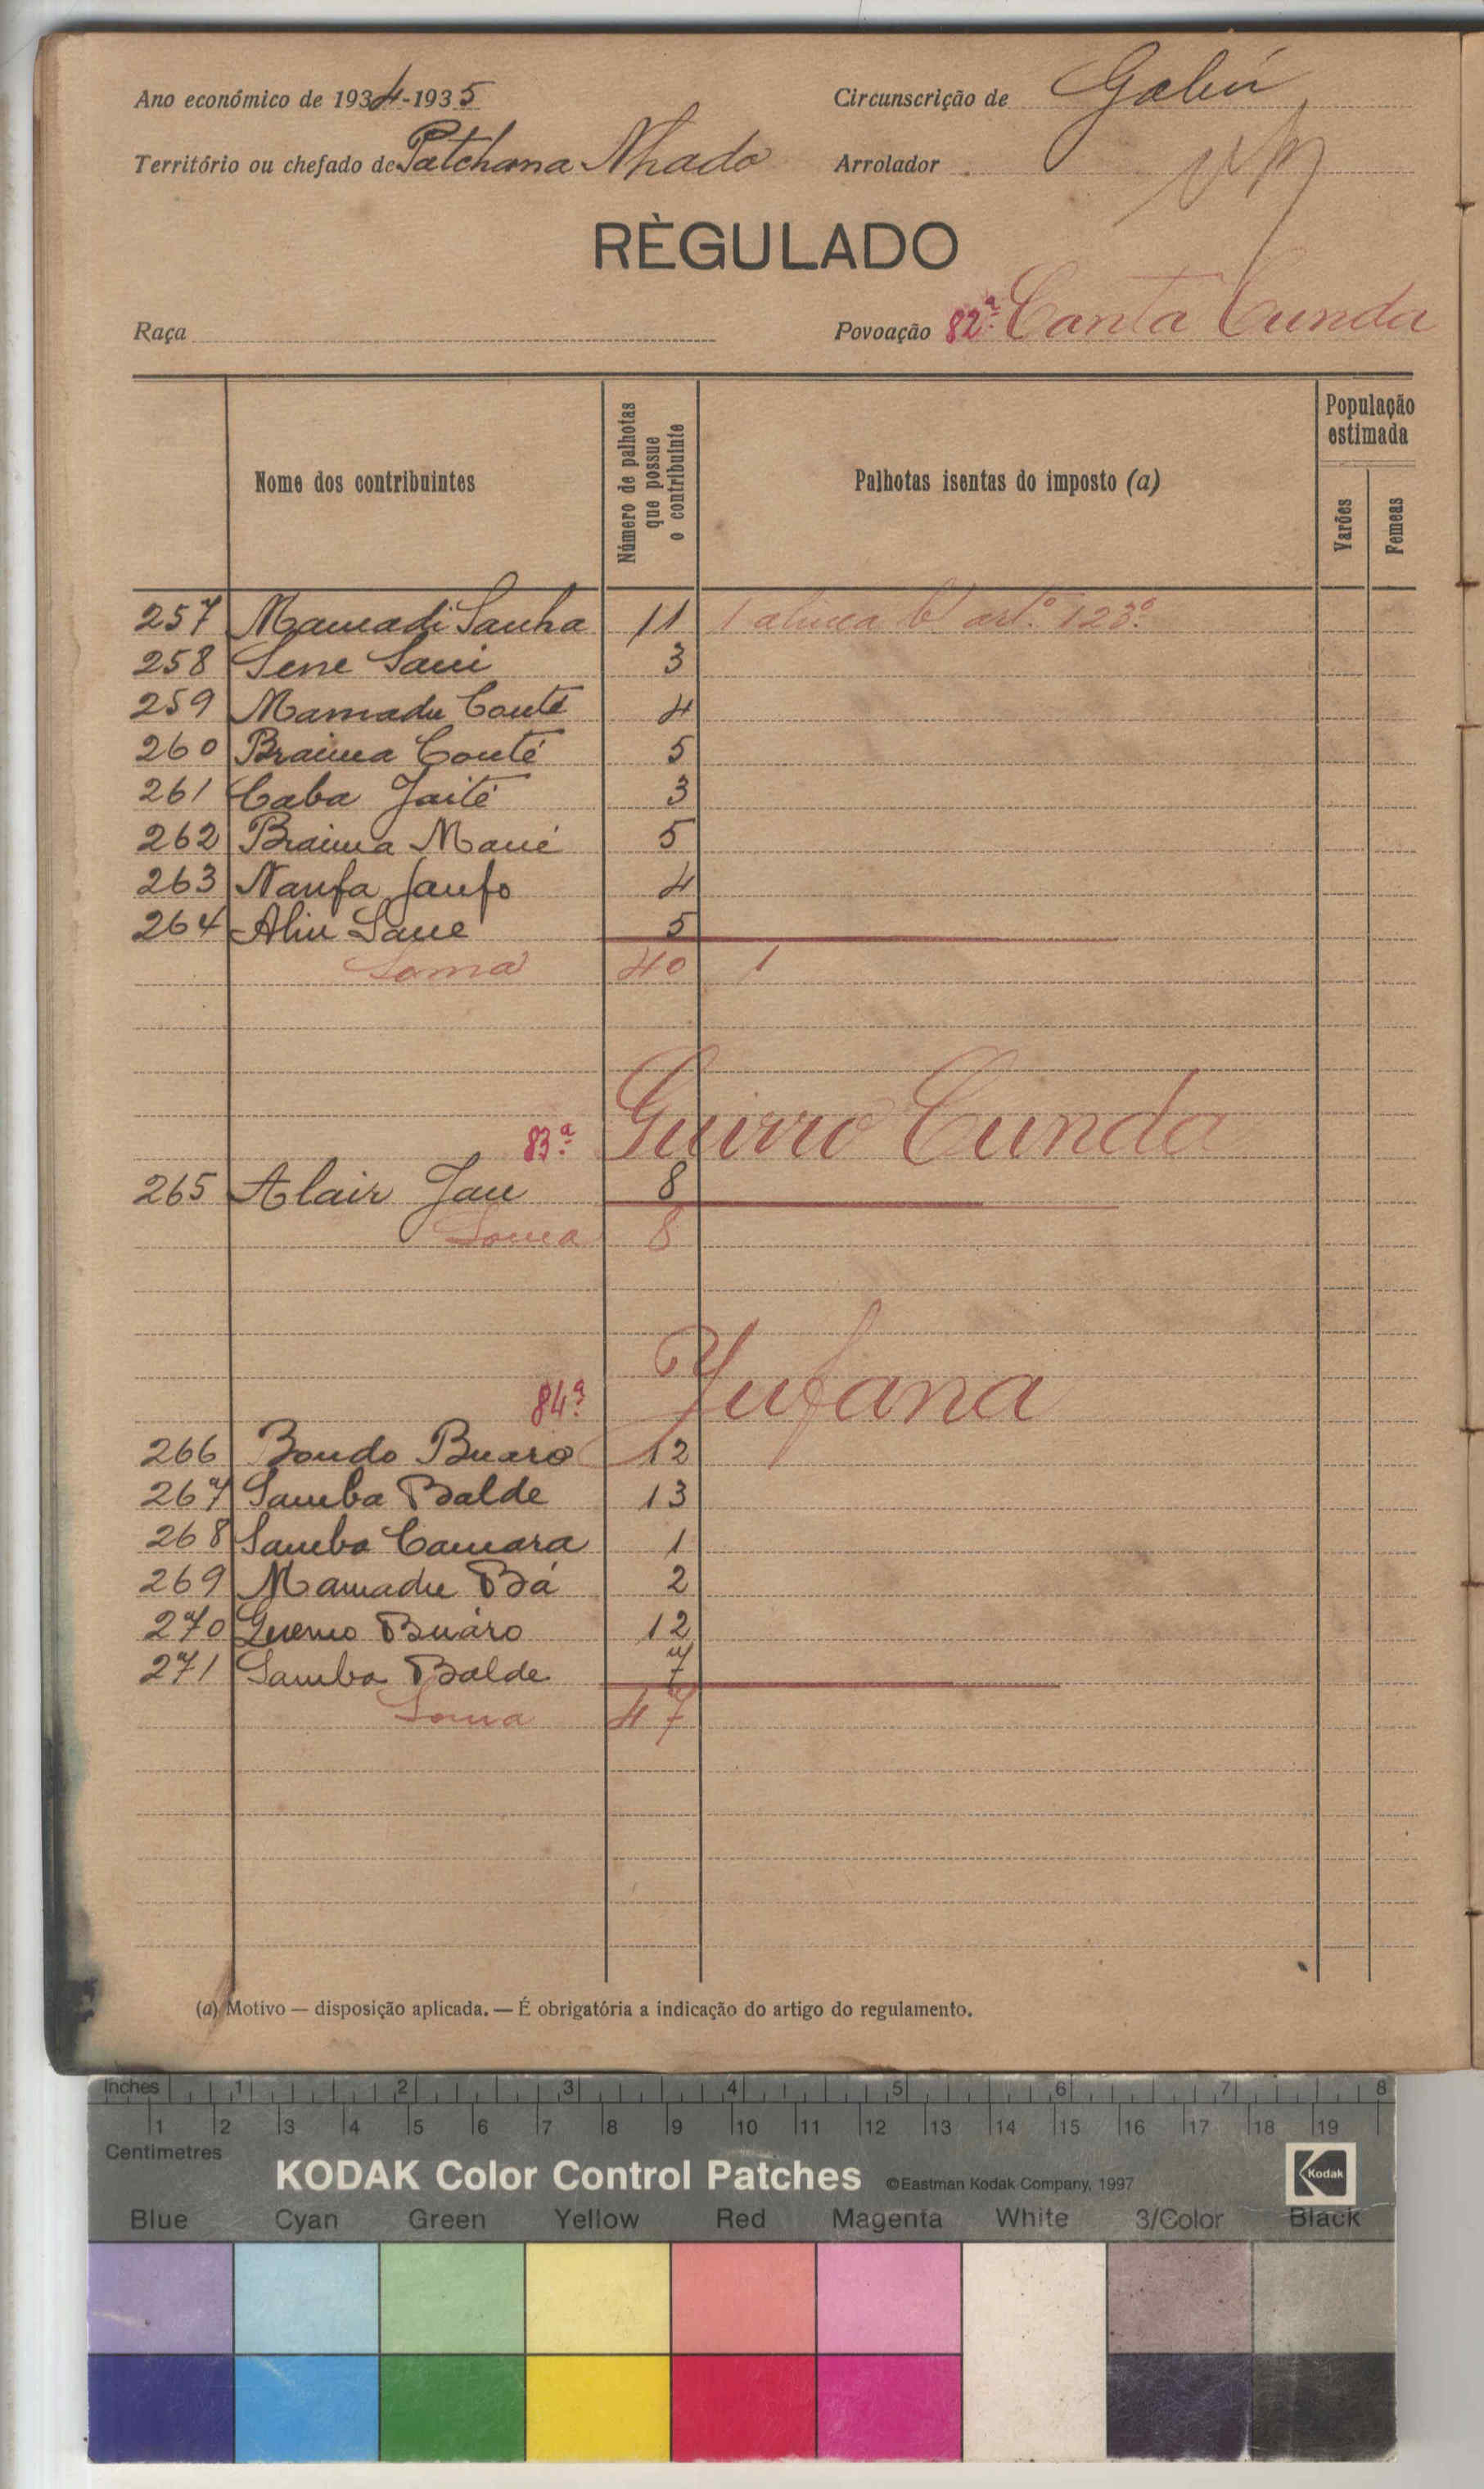 Ano económico de 1934-1935 Circunscrição de Gabú
Território ou chefado de Patchana Nhado Arrolador
RÈGULADO
Raça Povoação 82ª Canta Cunda
Nome dos contribuintes
Número de palhotas que possue o contribuinte
Palhotas isentas do imposto (a)
População estimada
Varões
Femeas
257 Mamadi Sanha 11 1 alinea b) artº 123º
258 Sene Sani 3
259 Mamadu Conté 4
260 Braima Conté 5
261 Caba Jaité 3
262 Braima Mané 5
263 Nanfa Janfo 4
264 Aliu Sane 5
Soma 40 1
83ª Guirro Cunda
265 Alair Jau 8
Soma 8
84ª Jufana
266 Bondo Buaro 12
267 Samba Balde 13
268 Samba Camara 1
269 Mamadu Bá 2
270 Buáro 12
271 Samba Balde 7
Soma 47
(a) Motivo — disposição aplicada. — É obrigatória a indicação do artigo do regulamento.
Inches 1 2 3 4 5 6 7 8
1 2 3 4 5 6 7 8 9 10 11 12 13 14 15 16 17 18 19
Centimetres
KODAK Color Control Patches ©Eastman Kodak Company, 1997 Kodak
Blue Cyan Green Yellow Red Magenta White 3/Color Black